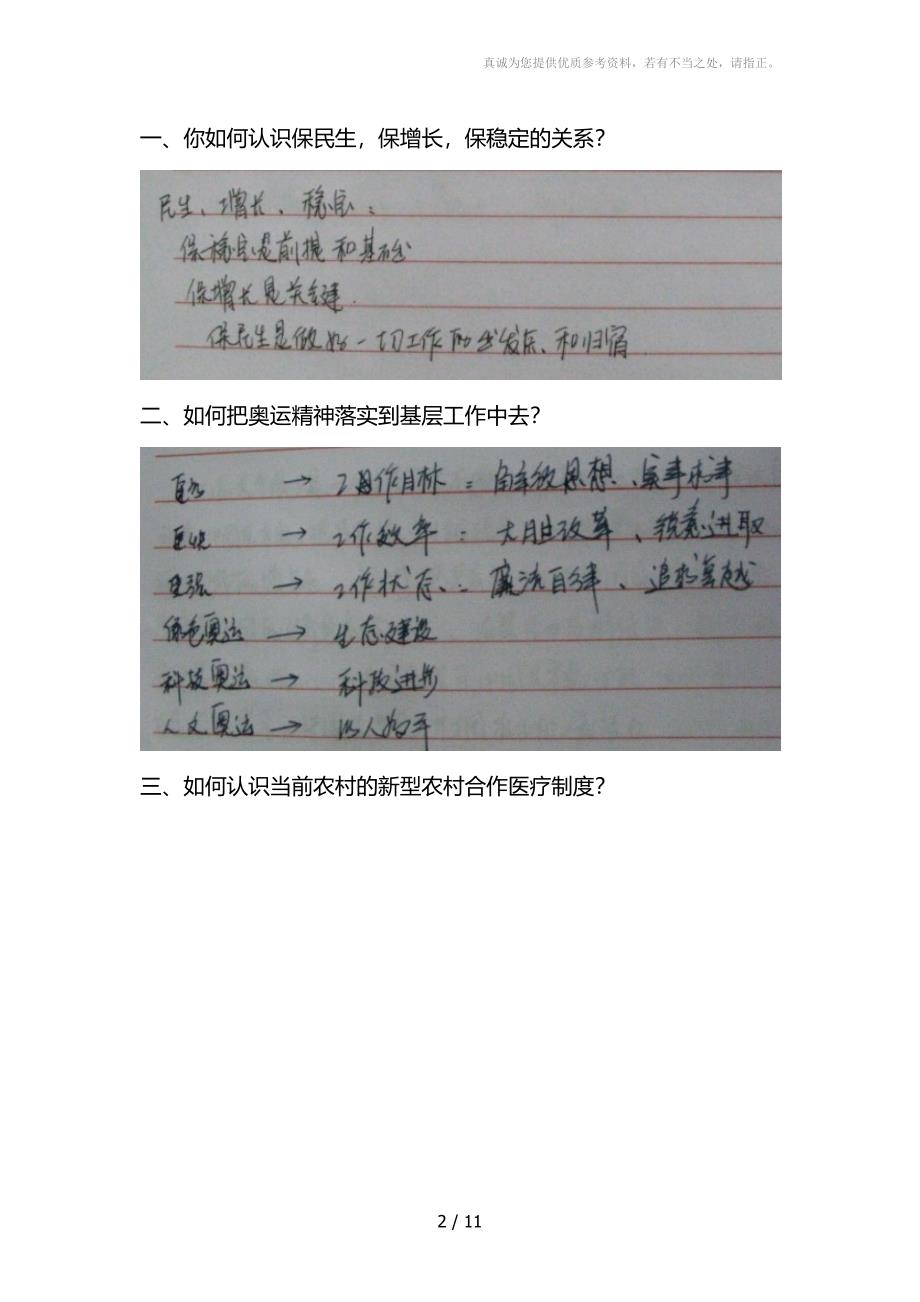 真诚为您提供优质参考资料，若有不当之处，请指正。
一、你如何认识保民生，保增长，保稳定的关系？
民生、增长、稳定：
保稳定是前提和基础
保增长是关键.
保民生是做好一切工作的出发点、和归宿
二、如何把奥运精神落实到基层工作中去？
更高 → 工作目标：解放思想、实事求事
更快 → 工作效率：大胆改革、锐意进取
更强 → 工作状态：廉洁自律、追求卓越
绿色奥运 → 生态建设
科技奥运 → 科技进步
人文奥运 → 以人为本
三、如何认识当前农村的新型农村合作医疗制度？
2 / 11